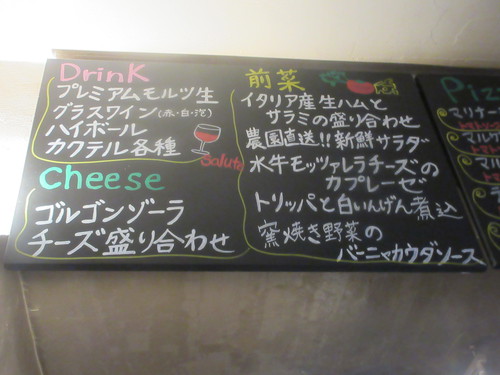 Drink
プレミアムモルツ生
グラスワイン(赤・白・泡)
ハイボール
カクテル各種
Salute
Cheese
ゴルゴンゾーラ
チーズ盛り合わせ
前菜
イタリア産生ハムと
サラミの盛り合わせ
農園直送!!新鮮サラダ
水牛モッツァレラチーズの
カプレーゼ
トリッパと白いんげん煮込
窯焼き野菜の
バーニャカウダソース
Pizz
マリナー
マルゲ
マルゲ